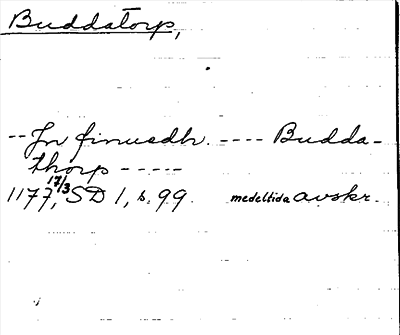 Buddatorp,
-- Jn finuedh. ---- Budda-
thorp -----
1177 17/3, SD 1, s. 99. medeltida avskr.